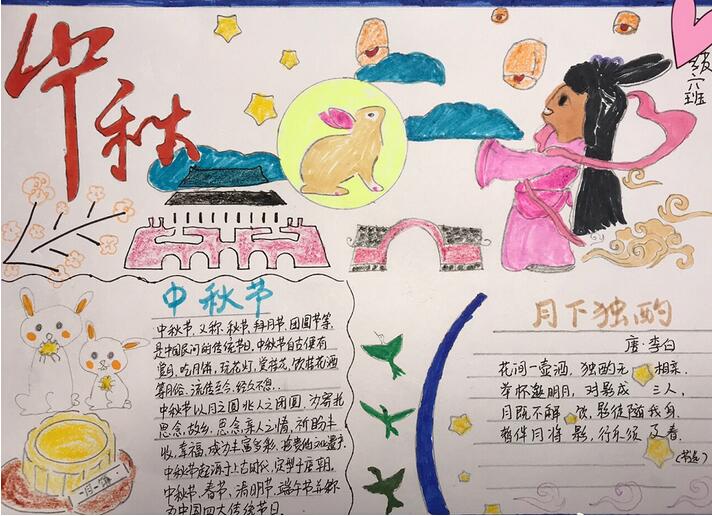 中秋
级
六
班
中秋节
中秋节,又称秋节,拜月节,团圆节等,
是中国民间的传统节日.中秋节自古便有
赏月,吃月饼,玩花灯,赏桂花,饮桂花酒
等民俗,流传至今,经久不息.
中秋节以月之圆兆人之团圆,为寄托
思念,故乡,思念亲人之情,祈盼丰
收,幸福,成为丰富多彩,珍贵的文化遗产.
中秋节起源于上古时代,定型于唐朝.
中秋节、春节、清明节、端午节并称
为中国四大传统节日.
月饼
月下独酌
唐·李白
花间一壶酒,独酌无相亲.
举杯邀明月,对影成三人.
月既不解饮,影徒随我身.
暂伴月将影,行乐须及春.
(节选)